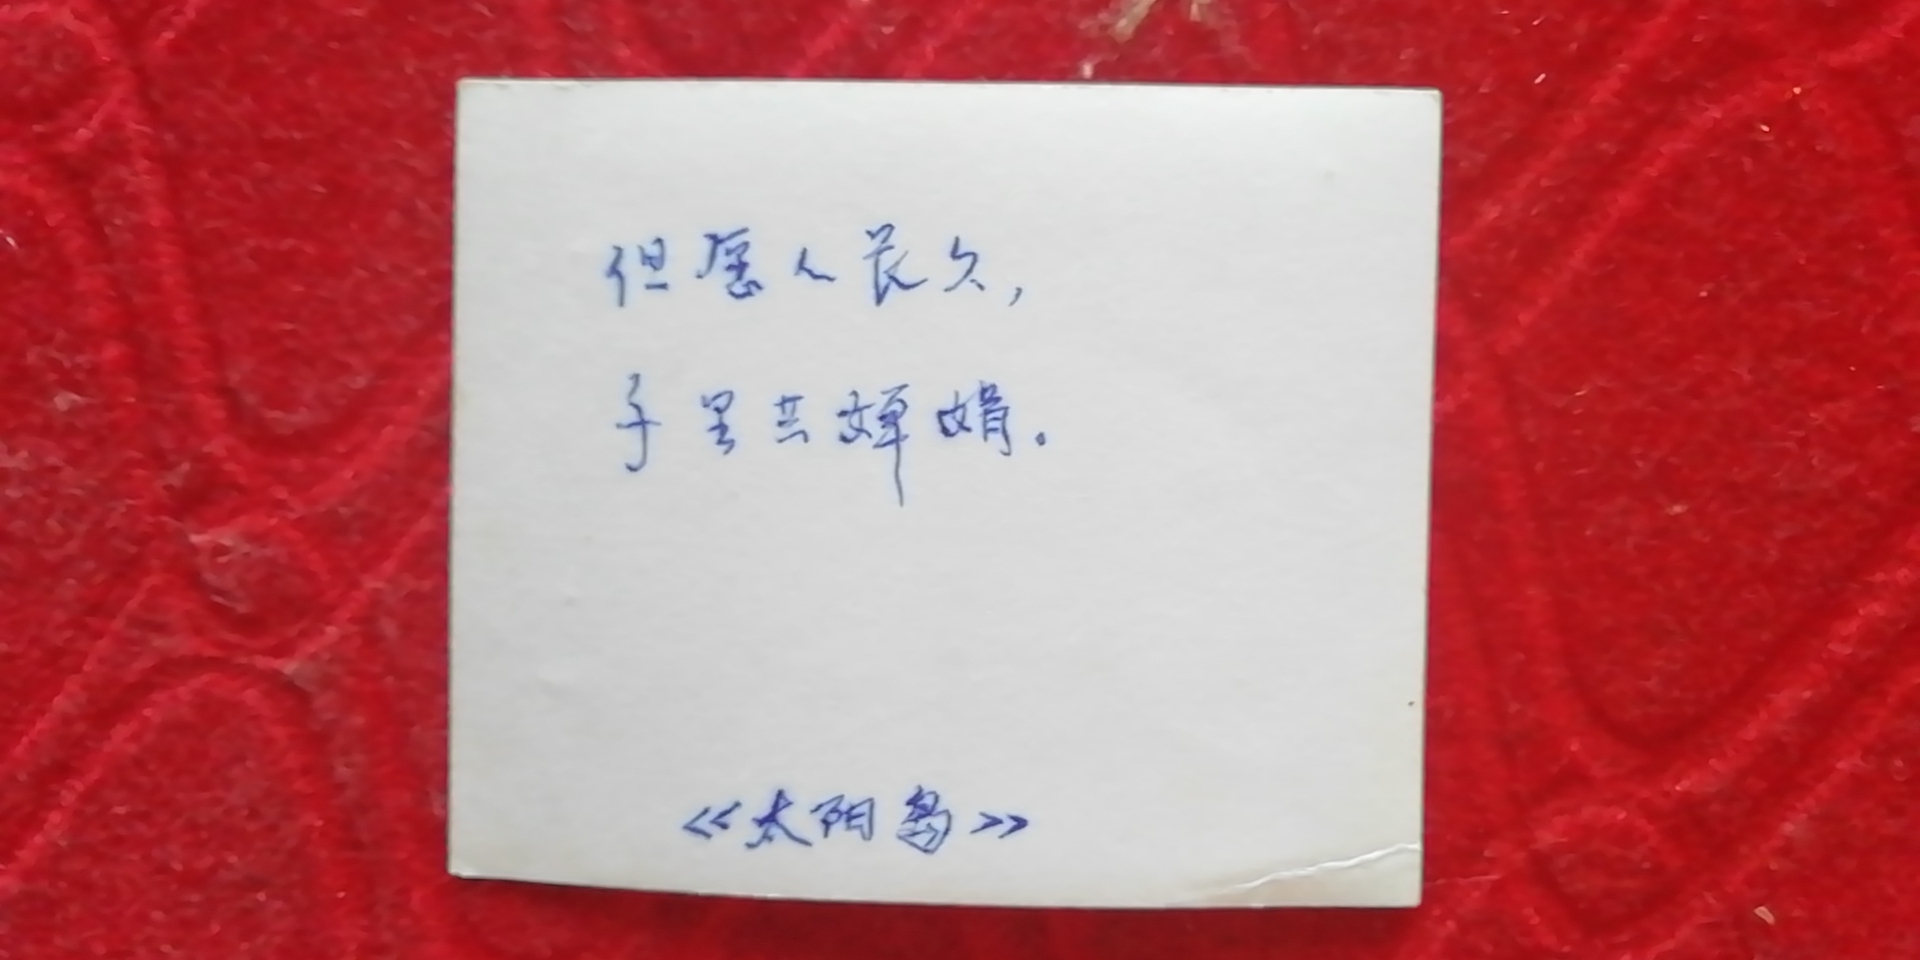 但愿人长久，
千里共婵娟。
《太阳岛》